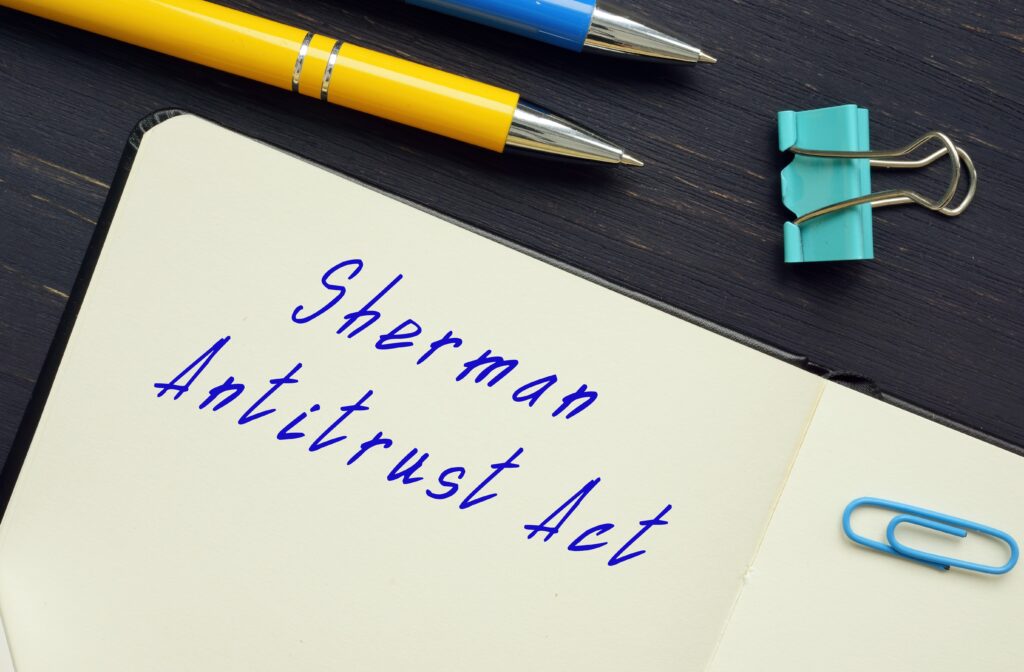 Sherman
Antitrust Act